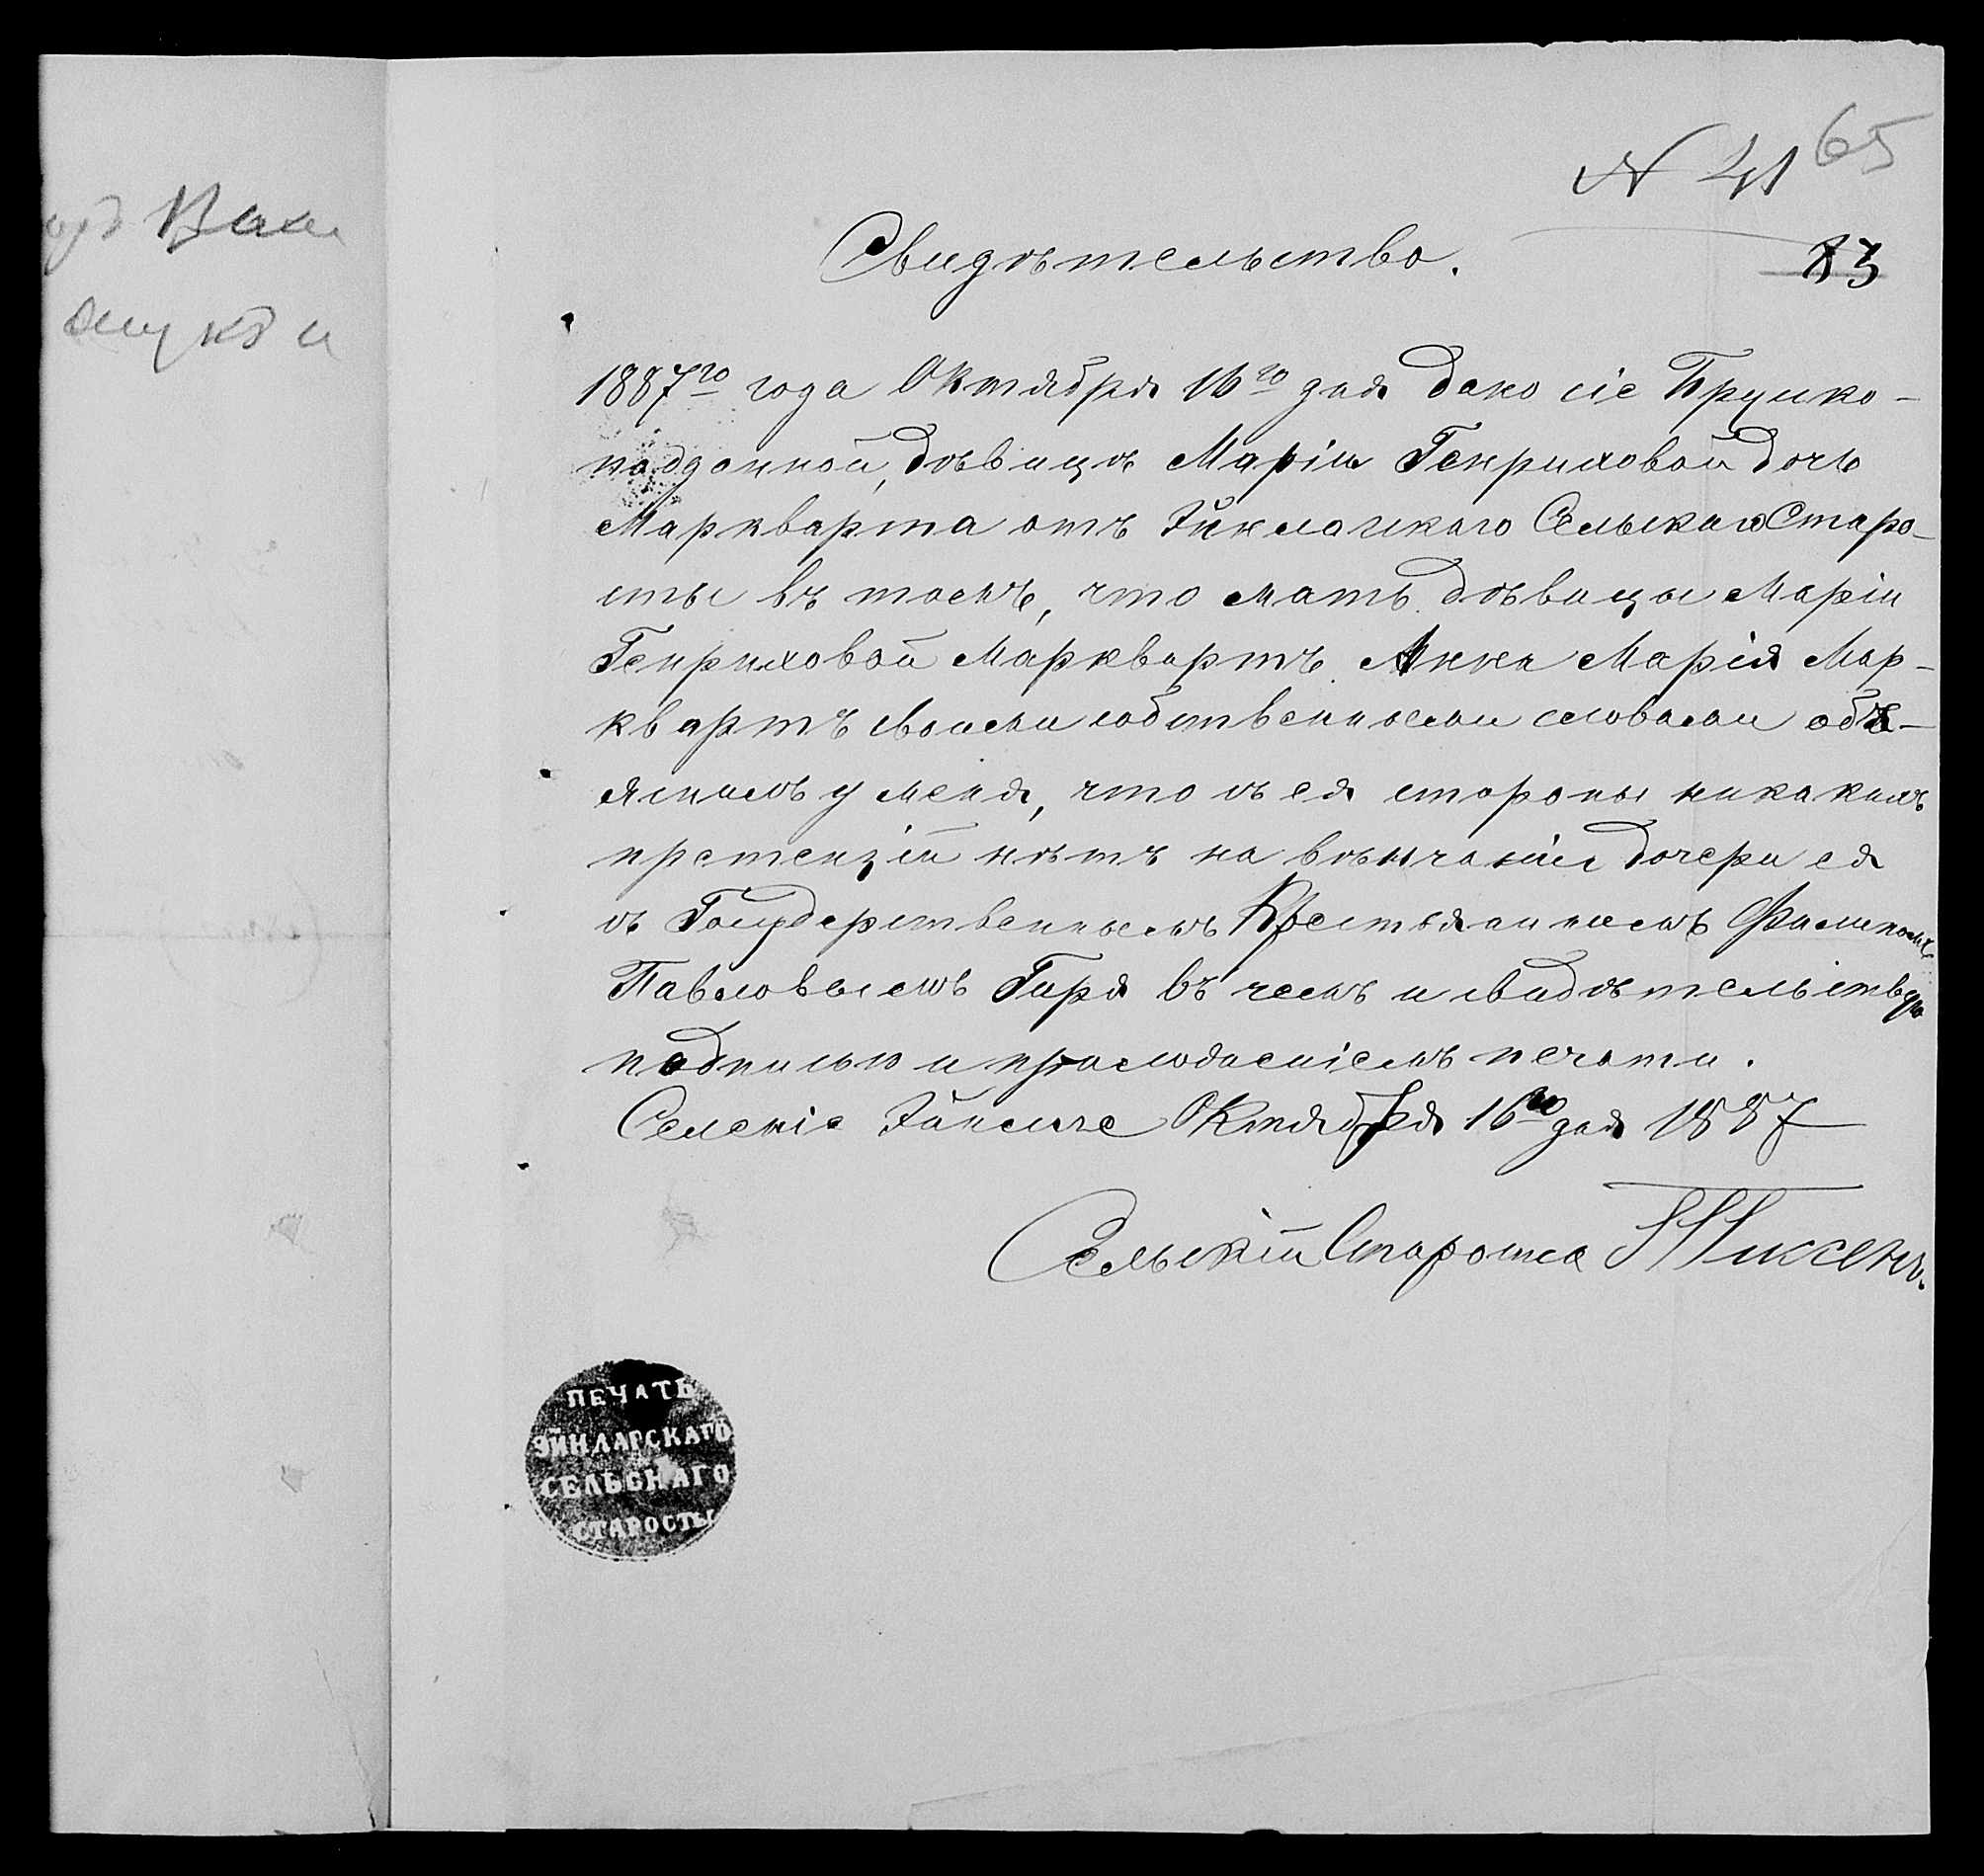 N 41 65
Свидѣтельство.
83
1887го года Октября 16го дня дано сіе Пруско-
подданной, дѣвицѣ Маріи Генриховой дочь
Маркварта отъ Сельскаго Старо-
сты въ томъ, что мать дѣвицы Маріи
Генриховой Марквартъ Анна Марія Мар-
квартъ своими собственными словами объ-
яснилъ у меня, что съ ея стороны никакихъ
претензій нѣтъ на вѣнчаніи дочери ея
съ Государственнымъ Крестьяниномъ Филипомъ
Павловымъ Гиря въ чемъ и свидѣтельствую
подписью и приложеніемъ печати.
Селеніе Октября 16го дня 1887
Сельскій Староста
ПЕЧАТЬ
СЕЛЬСКАГО
СТАРОСТЫ